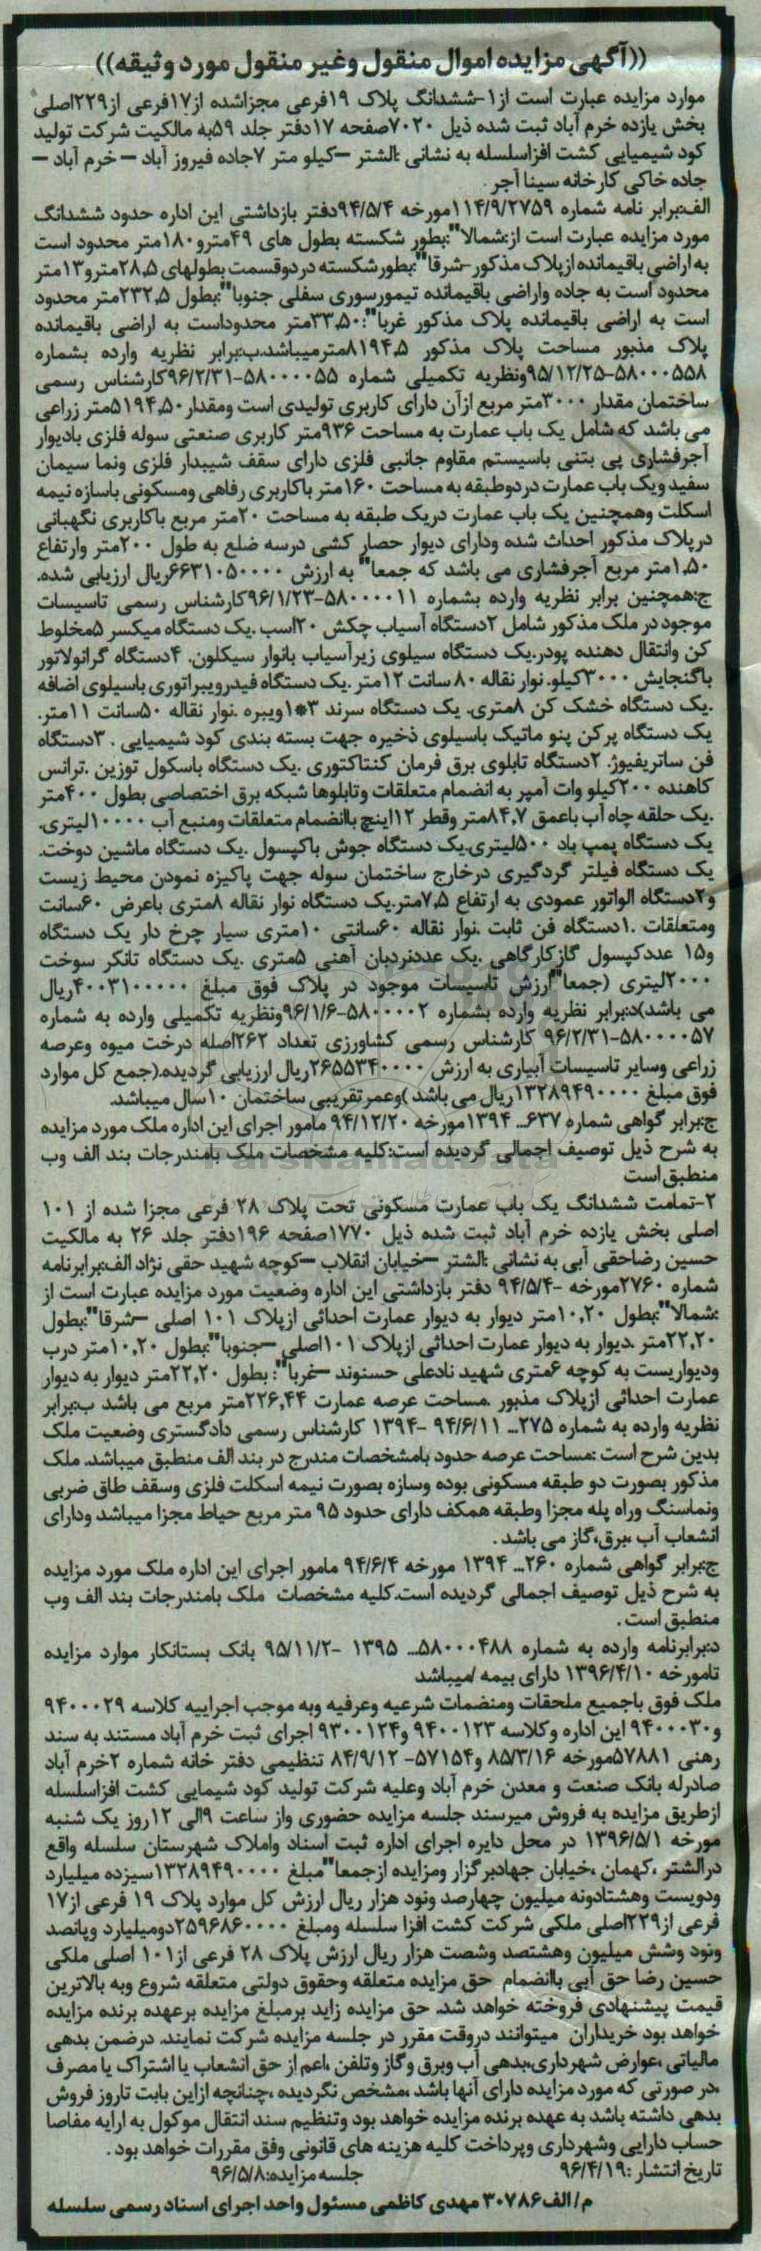 ((آگهی مزایده اموال منقول وغیر منقول مورد وثیقه))
موارد مزایده عبارت است از۱-ششدانگ پلاک ۱۹فرعی مجزاشده از۱۷فرعی از۲۲۹اصلی
بخش یازده خرم آباد ثبت شده ذیل ۷۰۲۰صفحه ۱۷دفتر جلد ۵۹به مالکیت شرکت تولید
کود شیمیایی کشت افزاسلسله به نشانی :الشتر –کیلو متر ۷جاده فیروز آباد – خرم آباد –
جاده خاکی کارخانه سینا آجر .
الف:برابر نامه شماره ۱۱۴/۹/۲۷۵۹مورخه ۹۴/۵/۴دفتر بازداشتی این اداره حدود ششدانگ
مورد مزایده عبارت است از:شمالا":بطور شکسته بطول های ۴۹مترو۱۸۰متر محدود است
به اراضی باقیمانده ازپلاک مذکور–شرقا":بطورشکسته دردوقسمت بطولهای ۲۸,۵مترو۱۳متر
محدود است به جاده واراضی باقیمانده تیمورسوری سفلی جنوبا":بطول ۲۳۲,۵متر محدود
است به اراضی باقیمانده پلاک مذکور غربا":۳۳,۵۰متر محدوداست به اراضی باقیمانده
پلاک مذبور مساحت پلاک مذکور ۸۱۹۴,۵مترمیباشد.ب:برابر نظریه وارده بشماره
۵۸۰۰۰۵۵۸-۹۵/۱۲/۲۵ونظریه تکمیلی شماره ۵۸۰۰۰۰۵۵-۹۶/۲/۳۱کارشناس رسمی
ساختمان مقدار ۳۰۰۰متر مربع ازآن دارای کاربری تولیدی است ومقدار۵۱۹۴,۵۰متر زراعی
می باشد که شامل یک باب عمارت به مساحت ۹۳۶متر کاربری صنعتی سوله فلزی بادیوار
آجرفشاری پی بتنی باسیستم مقاوم جانبی فلزی دارای سقف شیبدار فلزی ونما سیمان
سفید ویک باب عمارت دردوطبقه به مساحت ۱۶۰متر باکاربری رفاهی ومسکونی باسازه نیمه
اسکلت وهمچنین یک باب عمارت دریک طبقه به مساحت ۲۰متر مربع باکاربری نگهبانی
درپلاک مذکور احداث شده ودارای دیوار حصار کشی درسه ضلع به طول ۲۰۰متر وارتفاع
۱,۵۰متر مربع آجرفشاری می باشد که جمعا" به ارزش ۶۶۳۱۰۵۰۰۰۰ریال ارزیابی شده.
ج:همچنین برابر نظریه وارده بشماره ۵۸۰۰۰۰۱۱-۹۶/۱/۲۳کارشناس رسمی تاسیسات
موجود در ملک مذکور شامل ۲دستگاه آسیاب چکش ۲۰اسب .یک دستگاه میکسر ۵مخلوط
کن وانتقال دهنده پودر.یک دستگاه سیلوی زیرآسیاب بانوار سیکلون. ۴دستگاه گرانولاتور
باگنجایش ۳۰۰۰کیلو. نوار نقاله ۸۰ سانت ۱۲متر .یک دستگاه فیدرویبراتوری باسیلوی اضافه
.یک دستگاه خشک کن ۸متری. یک دستگاه سرند ۳*۱ویبره .نوار نقاله ۵۰سانت ۱۱متر.
یک دستگاه پرکن پنو ماتیک باسیلوی ذخیره جهت بسته بندی کود شیمیایی . ۳دستگاه
فن سانتریفیوژ. ۲دستگاه تابلوی برق فرمان کنتاکتوری .یک دستگاه باسکول توزین .ترانس
کاهنده ۲۰۰کیلو وات آمپر به انضمام متعلقات وتابلوها شبکه برق اختصاصی بطول ۴۰۰متر
.یک حلقه چاه آب باعمق ۸۴,۷متر وقطر ۱۲اینچ باانضمام متعلقات ومنبع آب ۱۰۰۰۰لیتری.
یک دستگاه پمپ باد ۵۰۰لیتری.یک دستگاه جوش باکپسول .یک دستگاه ماشین دوخت.
یک دستگاه فیلتر گردگیری درخارج ساختمان سوله جهت پاکیزه نمودن محیط زیست
و۲دستگاه الواتور عمودی به ارتفاع ۷,۵متر.یک دستگاه نوار نقاله ۸متری باعرض ۶۰سانت
ومتعلقات .۱دستگاه فن ثابت .نوار نقاله ۶۰سانتی ۱۰متری سیار چرخ دار یک دستگاه
و۱۵ عددکپسول گازکارگاهی .یک عددنردبان آهنی ۵متری .یک دستگاه تانکر سوخت
۲۰۰۰لیتری (جمعا"ارزش تاسیسات موجود در پلاک فوق مبلغ ۴۰۰۳۱۰۰۰۰۰ریال
می باشد)د:برابر نظریه وارده بشماره ۵۸۰۰۰۰۲-۹۶/۱/۶ونظریه تکمیلی وارده به شماره
۵۸۰۰۰۰۵۷-۹۶/۲/۳۱ کارشناس رسمی کشاورزی تعداد ۲۶۲اصله درخت میوه وعرصه
زراعی وسایر تاسیسات آبیاری به ارزش ۲۶۵۵۳۴۰۰۰۰ریال ارزیابی گردیده.(جمع کل موارد
فوق مبلغ ۱۳۲۸۹۴۹۰۰۰۰ریال می باشد )وعمرتقریبی ساختمان ۱۰سال میباشد.
ج:برابر گواهی شماره ۶۳۷... ۱۳۹۴مورخه ۹۴/۱۲/۲۰ مامور اجرای این اداره ملک مورد مزایده
به شرح ذیل توصیف اجمالی گردیده است:کلیه مشخصات ملک بامندرجات بند الف وب
منطبق است
۲-تمامت ششدانگ یک باب عمارت مسکونی تحت پلاک ۲۸ فرعی مجزا شده از ۱۰۱
اصلی بخش یازده خرم آباد ثبت شده ذیل ۱۷۷۰صفحه ۱۹۶دفتر جلد ۲۶ به مالکیت
حسین رضاحقی آبی به نشانی :الشتر –خیابان انقلاب –کوچه شهید حقی نژاد الف:برابرنامه
شماره ۲۷۶۰مورخه -۹۴/۵/۴ دفتر بازداشتی این اداره وضعیت مورد مزایده عبارت است از
:شمالا":بطول ۱۰,۲۰متر دیوار به دیوار عمارت احداثی ازپلاک ۱۰۱ اصلی –شرقا":بطول
۲۲,۲۰متر .دیوار به دیوار عمارت احداثی ازپلاک ۱۰۱اصلی –جنوبا":بطول ۱۰,۲۰متر درب
ودیواریست به کوچه ۶متری شهید نادعلی حسنوند –غربا": بطول ۲۲,۲۰متر دیوار به دیوار
عمارت احداثی ازپلاک مذبور .مساحت عرصه عمارت ۲۲۶,۴۴متر مربع می باشد ب:برابر
نظریه وارده به شماره ۲۷۵... ۹۴/۶/۱۱ -۱۳۹۴ کارشناس رسمی دادگستری وضعیت ملک
بدین شرح است :مساحت عرصه حدود بامشخصات مندرج در بند الف منطبق میباشد. ملک
مذکور بصورت دو طبقه مسکونی بوده وسازه بصورت نیمه اسکلت فلزی وسقف طاق ضربی
ونماسنگ وراه پله مجزا وطبقه همکف دارای حدود ۹۵ متر مربع حیاط مجزا میباشد ودارای
انشعاب آب ،برق،گاز می باشد .
ج:برابر گواهی شماره ۲۶۰... ۱۳۹۴ مورخه ۹۴/۶/۴ مامور اجرای این اداره ملک مورد مزایده
به شرح ذیل توصیف اجمالی گردیده است.کلیه مشخصات ملک بامندرجات بند الف وب
منطبق است .
د:برابرنامه وارده به شماره ۵۸۰۰۰۴۸۸... ۱۳۹۵ -۹۵/۱۱/۲ بانک بستانکار موارد مزایده
تامورخه ۱۳۹۶/۴/۱۰ دارای بیمه /میباشد
ملک فوق باجمیع ملحقات ومنضمات شرعیه وعرفیه وبه موجب اجراییه کلاسه ۹۴۰۰۰۲۹
و۹۴۰۰۰۳۰ این اداره وکلاسه ۹۴۰۰۱۲۳ و۹۳۰۰۱۲۴ اجرای ثبت خرم آباد مستند به سند
رهنی ۵۷۸۸۱مورخه ۸۵/۳/۱۶ و۵۷۱۵۴- ۸۴/۹/۱۲ تنظیمی دفتر خانه شماره ۲خرم آباد
صادرله بانک صنعت و معدن خرم آباد وعلیه شرکت تولید کود شیمایی کشت افزاسلسله
ازطریق مزایده به فروش میرسند جلسه مزایده حضوری واز ساعت ۹الی ۱۲روز یک شنبه
مورخه ۱۳۹۶/۵/۱ در محل دایره اجرای اداره ثبت اسناد واملاک شهرستان سلسله واقع
درالشتر ،کهمان ،خیابان جهادبرگزار ومزایده ازجمعا"مبلغ ۱۳۲۸۹۴۹۰۰۰۰سیزده میلیارد
ودویست وهشتادونه میلیون چهارصد ونود هزار ریال ارزش کل موارد پلاک ۱۹ فرعی از۱۷
فرعی از۲۲۹اصلی ملکی شرکت کشت افزا سلسله ومبلغ ۲۵۹۶۸۶۰۰۰۰دومیلیارد وپانصد
ونود وشش میلیون وهشتصد وشصت هزار ریال ارزش پلاک ۲۸ فرعی از۱۰۱ اصلی ملکی
حسین رضا حق آبی باانضمام حق مزایده متعلقه وحقوق دولتی متعلقه شروع وبه بالاترین
قیمت پیشنهادی فروخته خواهد شد. حق مزایده زاید برمبلغ مزایده برعهده برنده مزایده
خواهد بود خریداران میتوانند دروقت مقرر در جلسه مزایده شرکت نمایند. درضمن بدهی
مالیاتی ،عوارض شهرداری،بدهی آب وبرق وگاز وتلفن ،اعم از حق انشعاب یا اشتراک یا مصرف
،در صورتی که مورد مزایده دارای آنها باشد ،مشخص نگردیده ،چنانچه ازاین بابت تاروز فروش
بدهی داشته باشد به عهده برنده مزایده خواهد بود وتنظیم سند انتقال موکول به ارایه مفاصا
حساب دارایی وشهرداری وپرداخت کلیه هزینه های قانونی وفق مقررات خواهد بود .
تاریخ انتشار :۹۶/۴/۱۹ جلسه مزایده:۹۶/۵/۸
م/ الف۳۰۷۸۶ مهدی کاظمی مسئول واحد اجرای اسناد رسمی سلسله